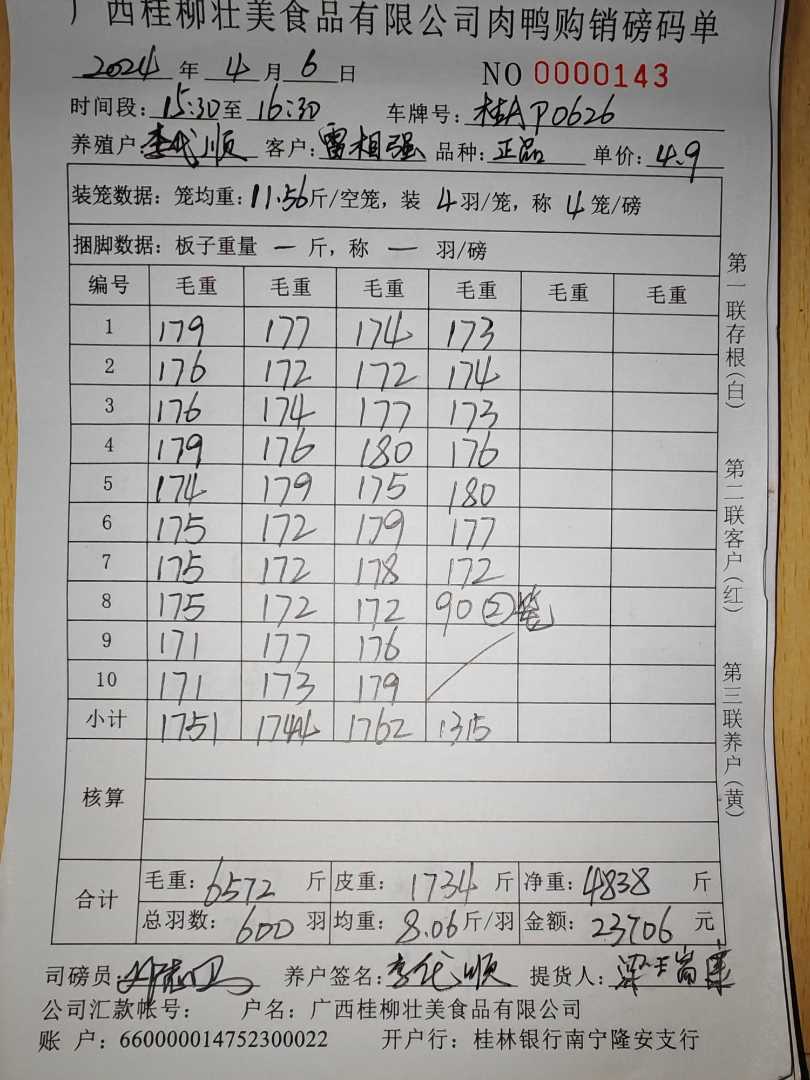 广西桂柳壮美食品有限公司肉鸭购销磅码单
2024 年 4 月 6 日 NO 0000143
时间段:15:30至 16:30 车牌号:桂AP0626
养殖户:李代顺 客户:雷相强 品种:正品 单价:4.9
装笼数据:笼均重:11.56斤/空笼,装 4 羽/笼,称 4 笼/磅
捆脚数据:板子重量 一 斤,称 一 羽/磅
编号 毛重 毛重 毛重 毛重 毛重 毛重
1 179 177 174 173
2 176 172 172 174
3 176 174 177 173
4 179 176 180 176
5 174 179 175 180
6 175 172 179 177
7 175 172 178 172
8 175 172 172 90 ②笼
9 171 177 176
10 171 173 179
小计 1751 1744 1762 1315
核算
合计 毛重:6572 斤 皮重:1734 斤 净重:4838 斤
总羽数:600 羽 均重:8.06斤/羽 金额:23706 元
司磅员: 养户签名:李代顺 提货人:
公司汇款帐号: 户名:广西桂柳壮美食品有限公司
账 户:660000014752300022 开户行:桂林银行南宁隆安支行
第一联存根(白)
第二联客户(红)
第三联养户(黄)